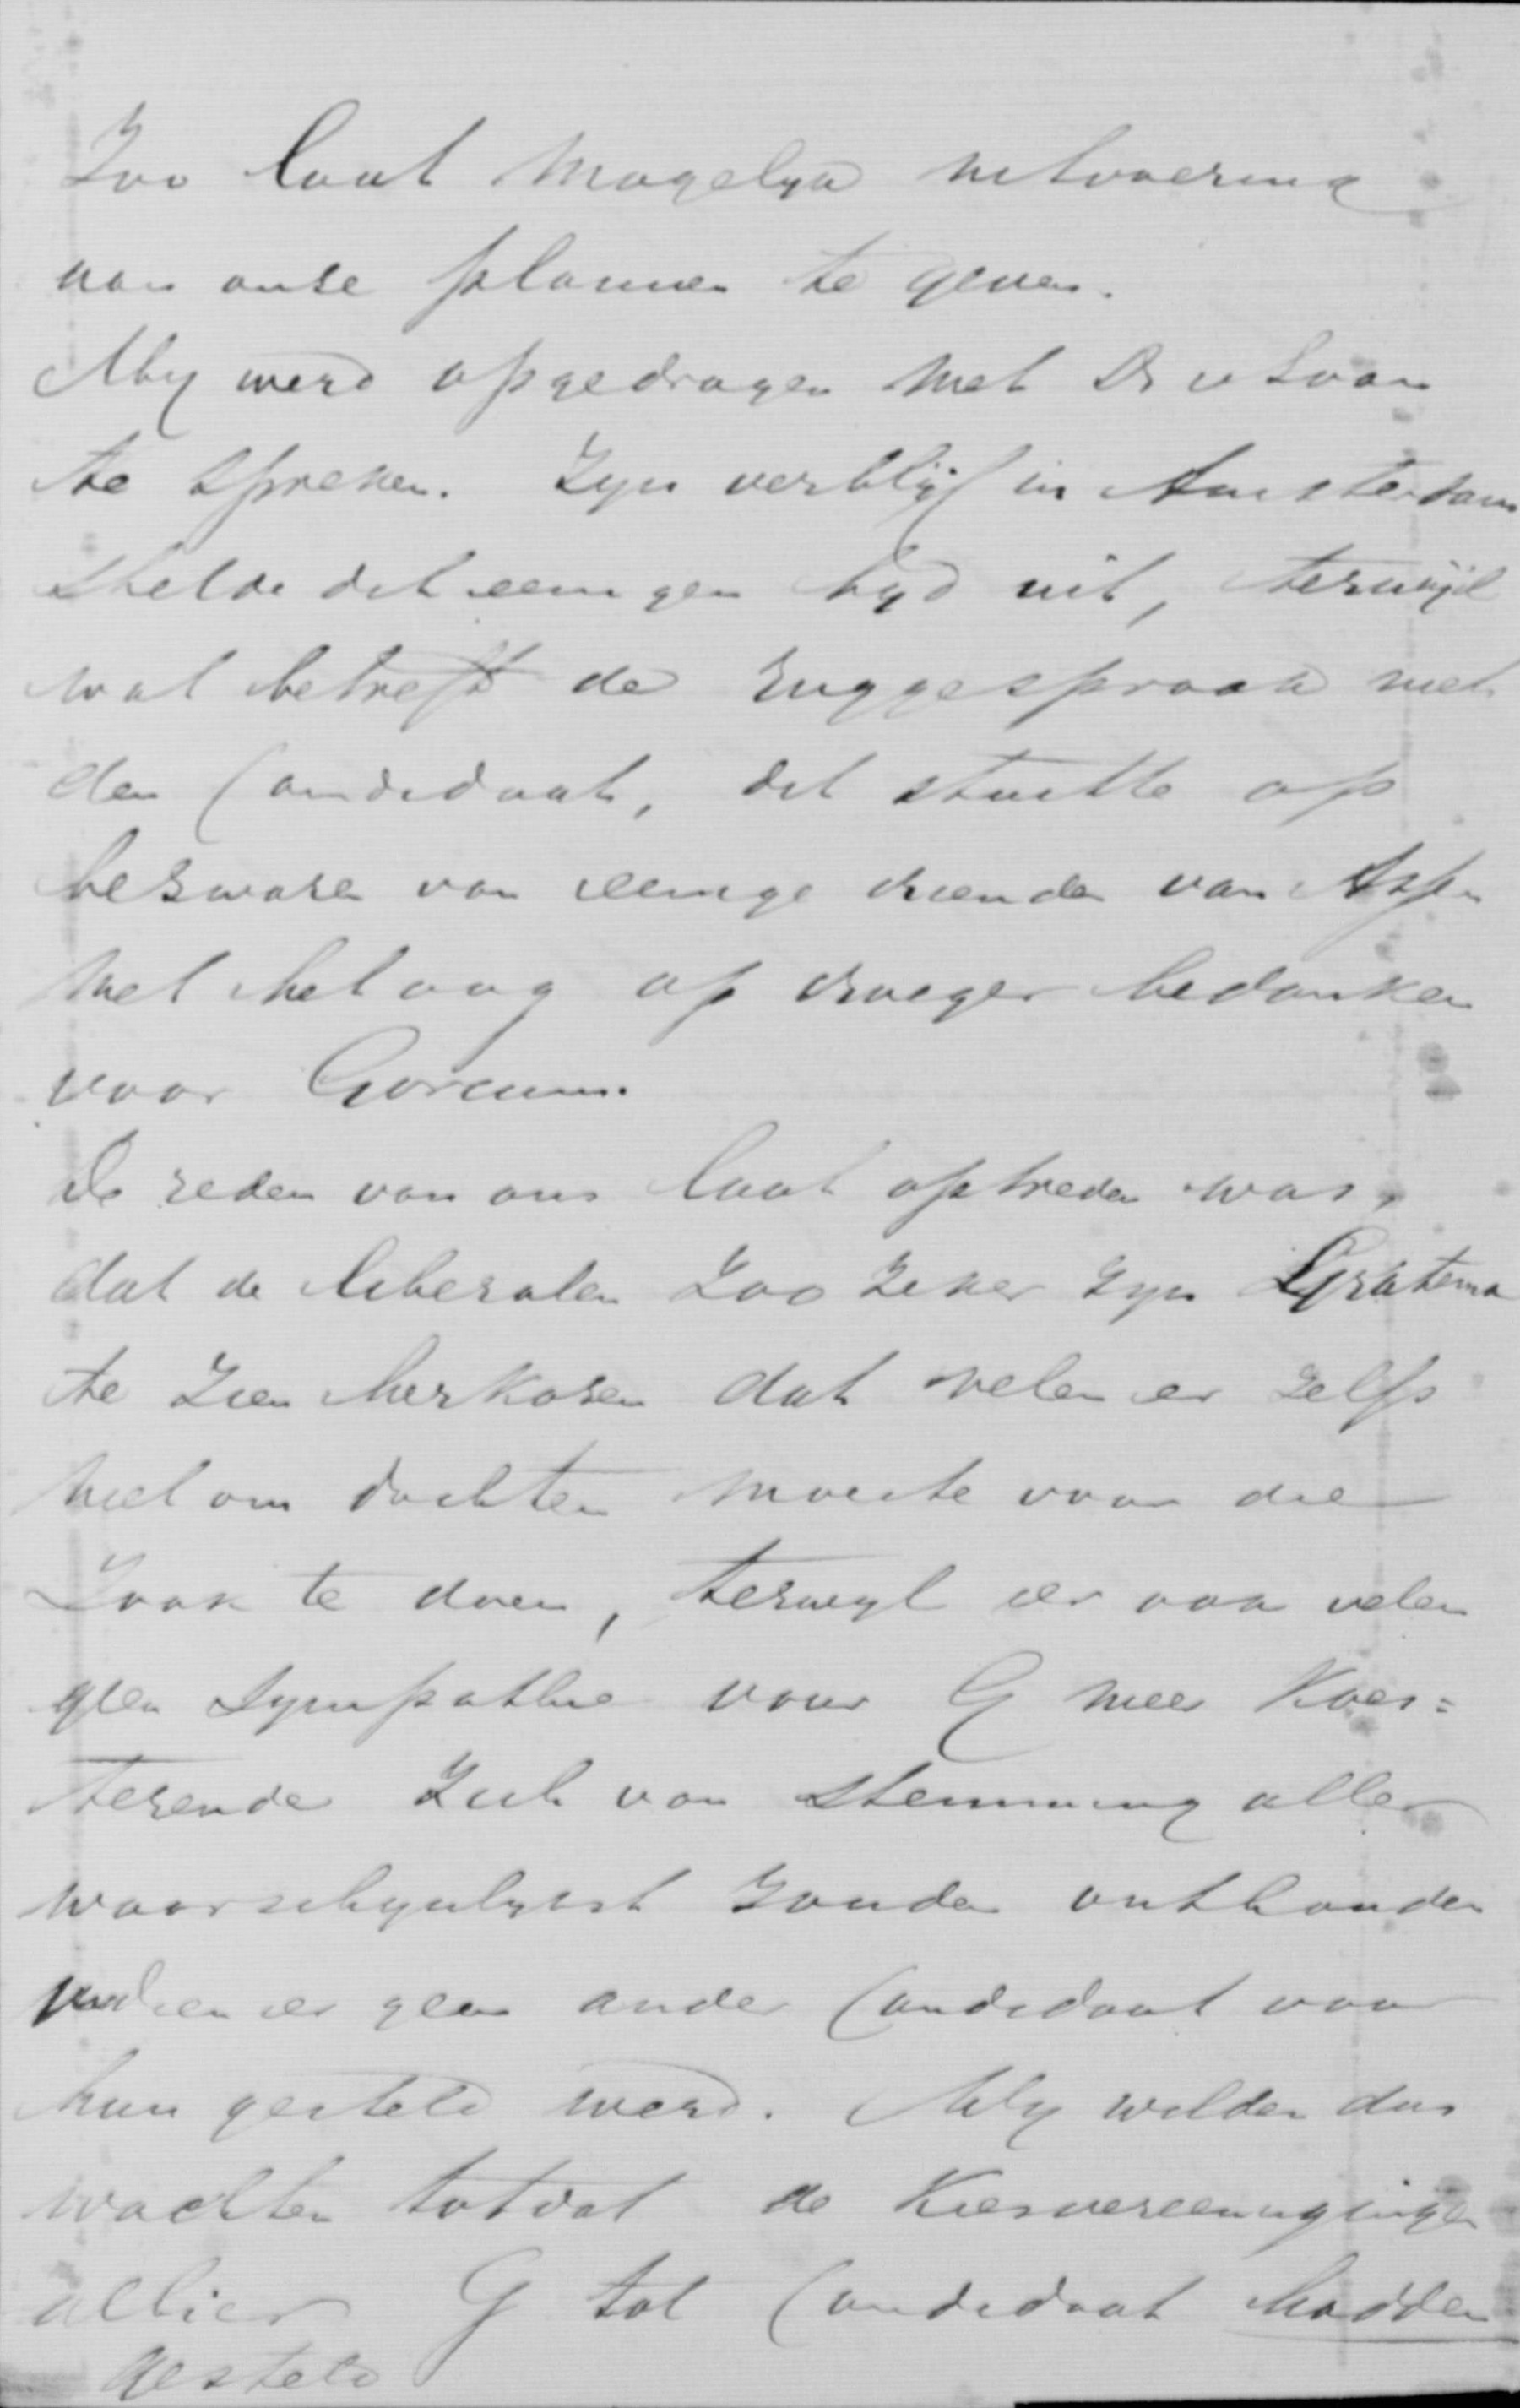 Zoo laat mogelyk uitvoering
van onze plannen te geven.
My werd opgedragen met Dr v Loon
te spreken. Zyn verblijf in Amsterdam
stelde dit eenigen tyd uit, terwijl
wat betreft de ruggespraak met
den Candidaat, dit stuitte op
bezwaren van eenige vrienden van Assen
met het oog op vroeger bedanken
voor Gorcum.
De reden van ons laat optreden was,
dat de liberalen zoo zeker zyn Gratema
te zien herkozen dat velen er zelfs
niet om dachten moeite voor die
Zaak te doen, terwyl er ook velen
geen sympathie voor G meer koes=
terende zich van stemming aller
waarschynlykst zouden onthouden
indien er geen ander Candidaat voor
hun gesteld werd. Wy wilden dus
wachten totdat de Kiesvereenigingen
alhier G tot Candidaat hadden
gesteld